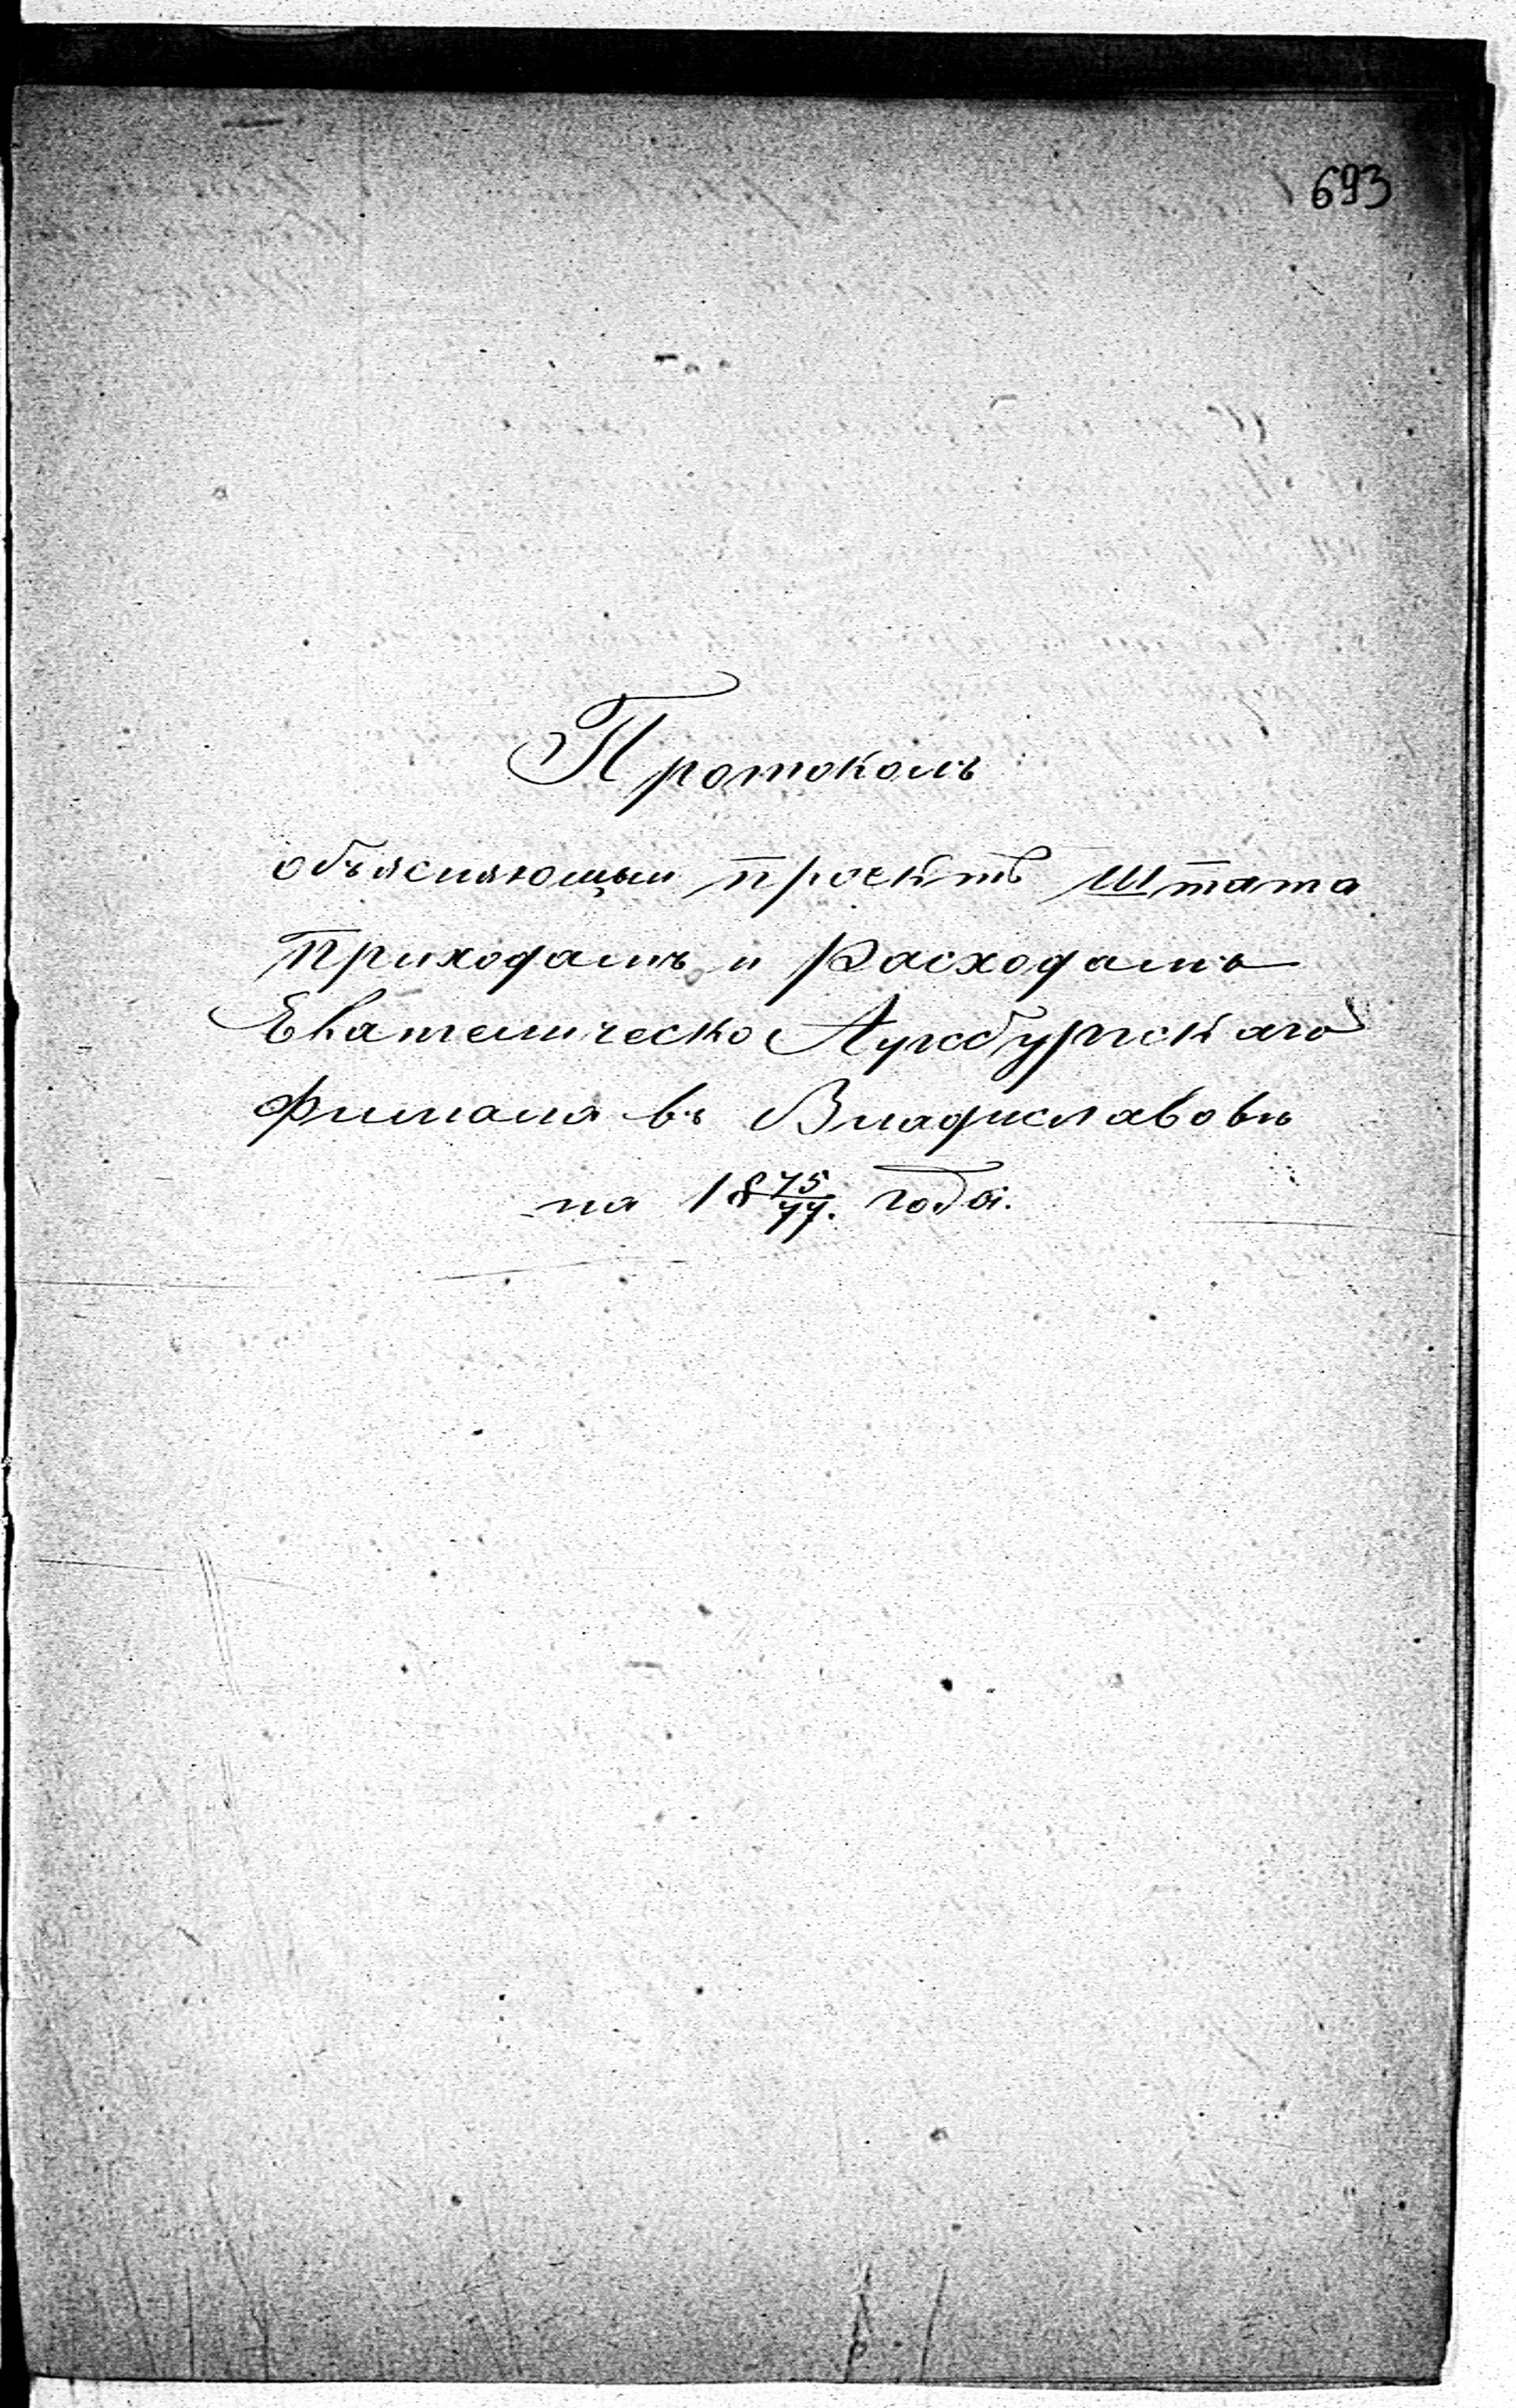 693
Протоколъ
объясняющый проектъ Штата
Приходамъ и Расходамъ
Евангелическо Аугсбургскаго
Филиала въ Владиславовѣ
на 18 75/77. года.